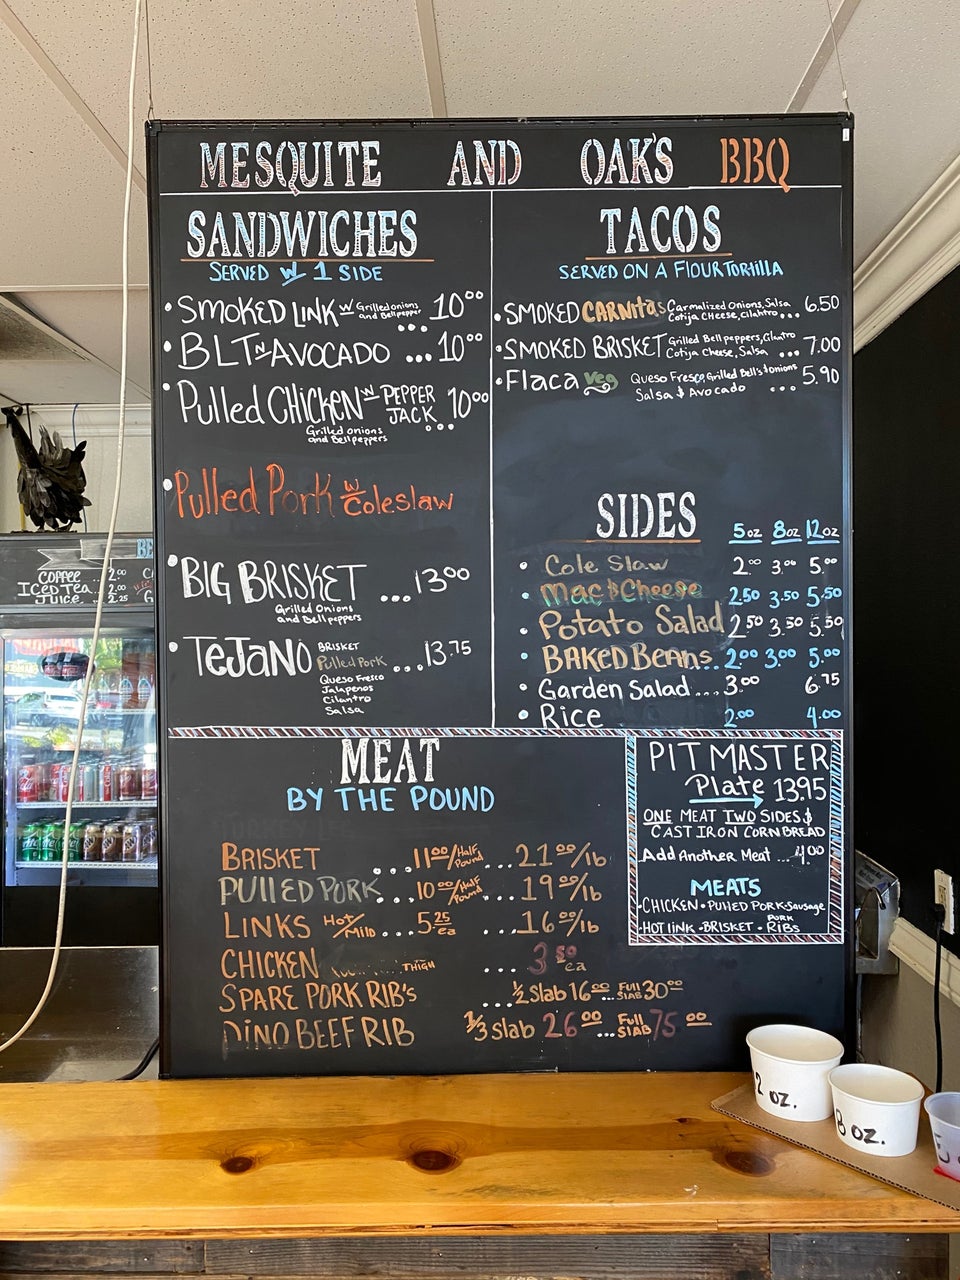 MESQUITE AND OAK'S BBQ
SANDWICHES
SERVED W 1 SIDE
• SMOKED LINK W Grilled onions and Bell pepper ... 10⁰⁰
• BLT N AVOCADO ... 10⁰⁰
• Pulled CHICKEN W PEPPER JACK ... 10⁰⁰
Grilled onions
and Bell peppers
• Pulled Pork W/ Coleslaw
• BIG BRISKET ... 13⁰⁰
Grilled Onions
and Bell peppers
• TEJANO BRISKET ... 13.75
Pulled Pork
Queso Fresco
Jalapenos
Cilantro
Salsa
TACOS
SERVED ON A FLOUR TORTILLA
• SMOKED CARNITAS Carmalized Onions, Salsa
Cotija CHeese, Cilahtro ... 6.50
• SMOKED BRISKET Grilled Bell peppers, Cilantro
Cotija Cheese, Salsa ... 7.00
• Flaca Veg Queso Fresco, Grilled Bell's & onions
Salsa $ Avocado ... 5.90
SIDES
5oz 8oz 12oz
• Cole Slaw 2⁰⁰ 3.⁰⁰ 5.⁰⁰
• Mac & Cheese 2.50 3.50 5.50
• Potato Salad 2⁵⁰ 3.50 5.50
• BAKED Beans... 2⁰⁰ 3⁰⁰ 5.⁰⁰
• Garden Salad... 3.⁰⁰ 6.⁷⁵
• Rice 2.⁰⁰ 4.⁰⁰
MEAT
BY THE POUND
TURKEY LEG
BRISKET ... 11⁰⁰/Half Pound ... 21⁰⁰/lb
PULLED PORK ... 10⁰⁰/Half Pound ... 19⁰⁰/lb
LINKS Hot/Mild ... 5²⁵ ea ... 16⁰⁰/lb
CHICKEN THIGH ... 3⁵⁰ ea
SPARE PORK RIB's ... ½ Slab 16⁰⁰ ... Full SlAB 30⁰⁰
DINO BEEF RIB ⅓ Slab 26⁰⁰ ... Full SlAB 75⁰⁰
PIT MASTER
Plate 13.95
ONE MEAT TWO SIDES $
CAST IRON CORN BREAD
Add Another Meat ... 4.00
MEATS
• CHICKEN • PUllED PORK • Sausage
• HOT lINK • BRISKET • PORK RiBs
COFFEE ... 2.⁰⁰
ICED TEA ... 2.⁰⁰
JUICE ... 2.25
2 OZ.
8 OZ.